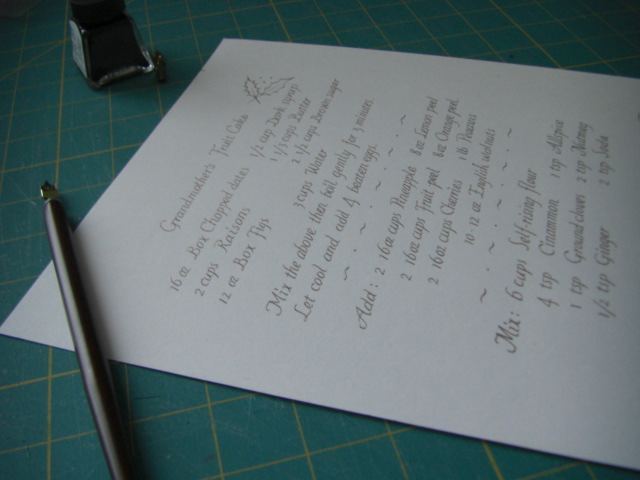 Grandmother's Fruit Cake
16 oz Box Chopped dates 1/2 cup Dark syrup
2 cups Raisons 1 1/3 cups Butter
12 oz Box Figs 3 cups Water 2 1/2 cups Brown sugar
Mix the above then boil gently for 3 minutes.
Let cool and add 4 beaten eggs.
~ ~ ~ ~ ~ ~
Add: 2 16 oz cups Pineapple 8 oz Lemon peel
2 16 oz cups Fruit peel 8 oz Orange peel
2 16 oz cups Cherries 1 lb Pecans
10-12 oz English walnuts
~ ~ ~ ~ ~ ~
Mix: 6 cups Self-rising flour
4 tsp Cinammon 1 tsp Allspice
1 tsp Ground cloves 2 tsp Nutmeg
1/2 tsp Ginger 2 tsp Soda